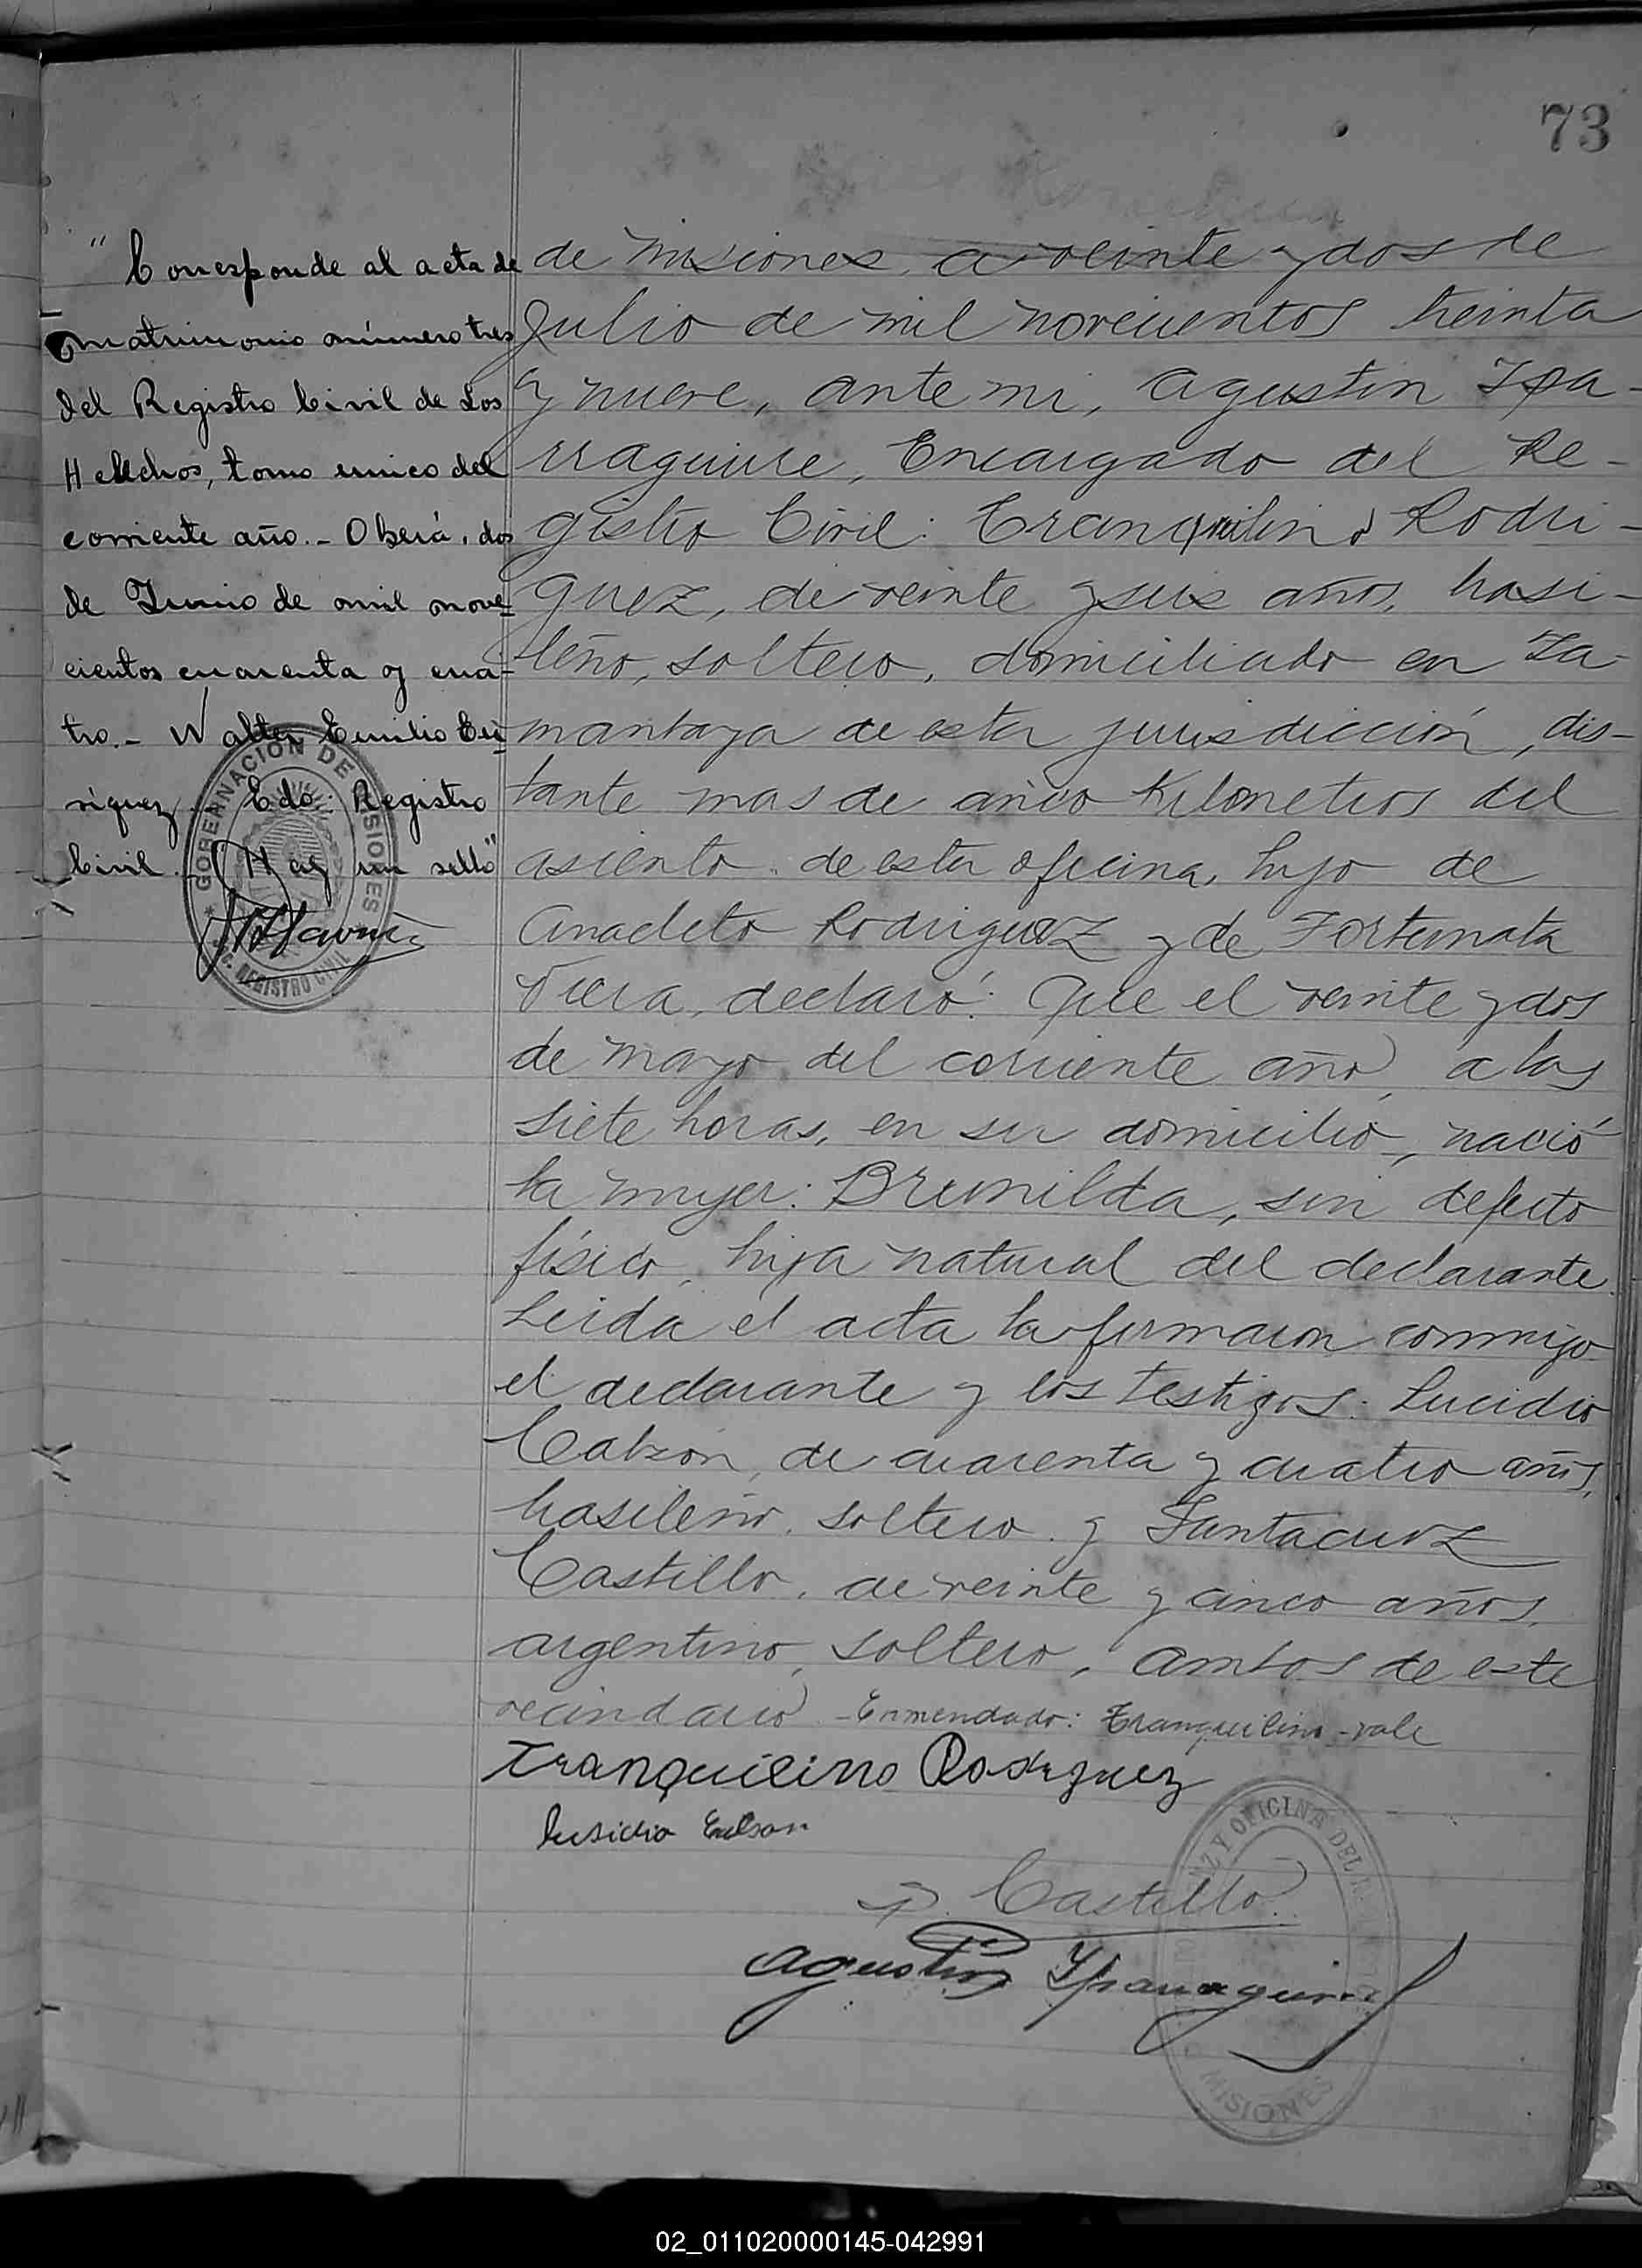 73
"Corresponde al acta de
matrimonio número tres
del Registro Civil de Los
Helechos, tomo unico del
corriente año.- Oberá, dos
de Junio de mil nove-
cientos cuarenta y cua-
tro.- Walter Emilio
Edo: Registro
Civil.- (Hay un sello"
GOBERNACION DE MISIONES
REGISTRO CIVIL
de Misiones, a veinte y dos de
Julio de mil novecientos treinta
y nueve, ante mi, Agustin Ipa-
rraguirre, Encargado del Re-
gistro Civil: Tranquilino Rodri-
guez, de veinte y seis años, brasi-
leño, soltero, domiciliado en Ta-
manbaya de esta jurisdicción, dis-
tante mas de cinco Kilometros del
asiento de esta oficina, hijo de
Anacleto Rodriguez y de Fortunata
Viera, declaró: Que el veinte y dos
de mayo del corriente año, a las
siete horas, en su domicilio, nació
la mujer: Brunilda, sin defecto
físico, hija natural del declarante.
Leida el acta la firmaron conmigo
el declarante y los testigos: Lucidio
Cabson, de cuarenta y cuatro años,
brasileño, soltero y Santacruz
Castillo, de veinte y cinco años,
argentino, soltero, ambos de este
vecindario - Enmendado: Tranquilino - vale
Tranquilino Rodriguez
Castillo
Agustin Yparraguirre
Z Y OFICINA DEL
MISIONES
02_011020000145-042991